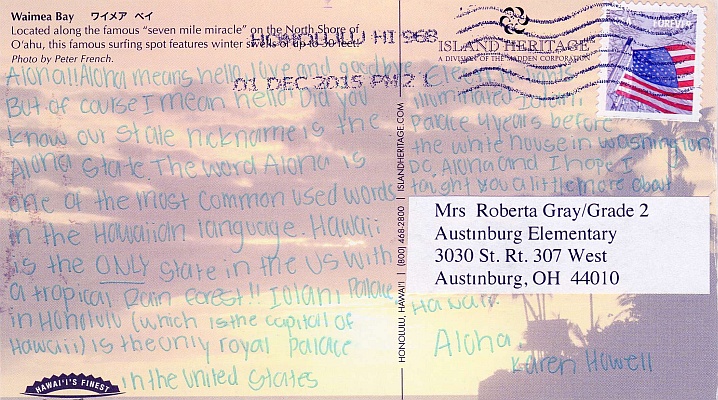 Waimea Bay ワイメア ベイ
Located along the famous "seven mile miracle" on the North Shore of
O'ahu, this famous surfing spot features winter swells of up to 30 feet.
Photo by Peter French.
HONOLULU HI 968
01 DEC 2015 PM 2 L
ISLAND HERITAGE
A DIVISION OF THE MADDEN CORPORATION
FOREVER
Aloha! Aloha means hello, love and goodbye
But of course I mean hello. Did you
know our state nickname is the
Aloha State. The word Aloha is
one of the most common used words
in the Hawaiian language. Hawaii
is the ONLY state in the US with
a tropical rain forest!! Iolani Palace
in Honolulu (which is the capitall of
Hawaii) is the only royal palace
in the United States
illuminated Iolani
Palace 4 years before
the white house in Washington
DC. Aloha and I hope I
taught you a little more about
Hawaii.
Aloha
Karen Howell
Mrs Roberta Gray/Grade 2
Austinburg Elementary
3030 St. Rt. 307 West
Austinburg, OH 44010
HONOLULU, HAWAI'I | (800) 468-2800 | ISLANDHERITAGE.COM
HAWAI'I'S FINEST